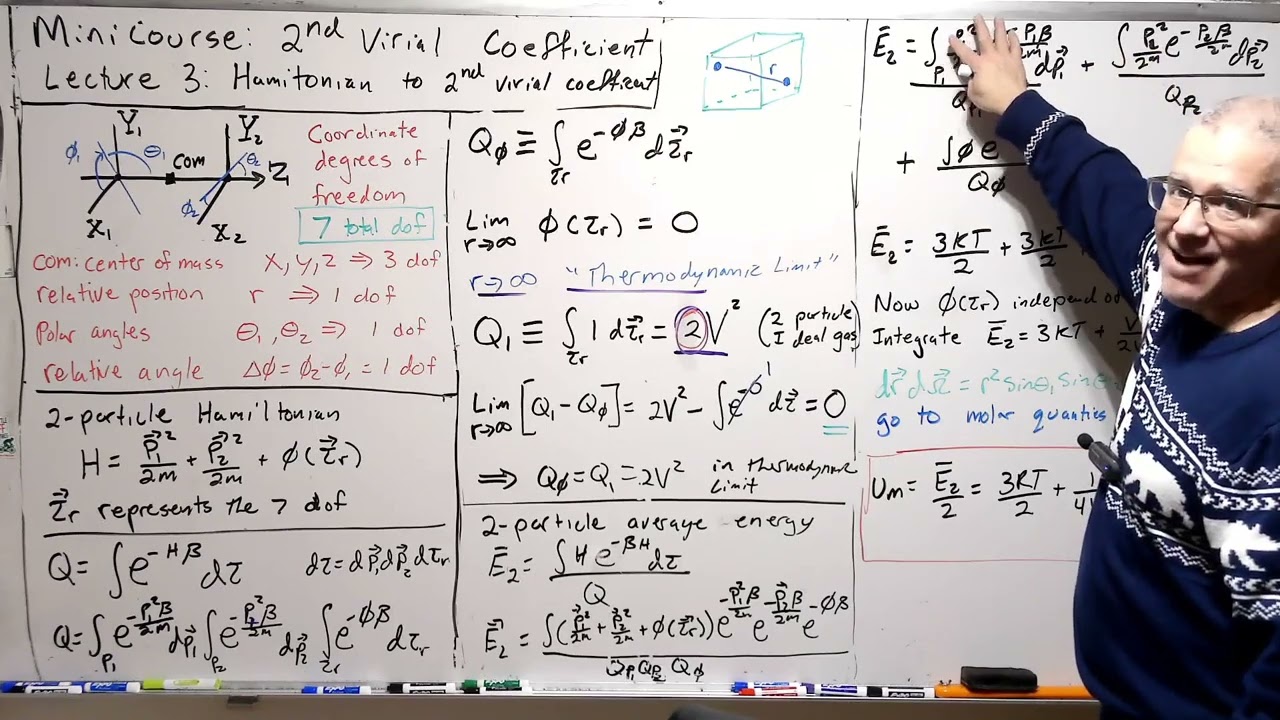 Minicourse: 2nd Virial Coefficient
Lecture 3: Hamitonian to 2nd virial coefficient
r
Y₁ Y₂
ϕ₁ θ₁ com θ₂ Z
ϕ₂
X₁ X₂
Coordinate
degrees of
freedom
7 total dof
com: center of mass X, Y, Z ⇒ 3 dof
relative position r ⇒ 1 dof
Polar angles θ₁, θ₂ ⇒ 1 dof
relative angle Δϕ = ϕ₂ - ϕ₁ = 1 dof
2-particle Hamiltonian
H = p⃗₁²/2m + p⃗₂²/2m + ϕ(τ⃗r)
τ⃗r represents the 7 dof
Q = ∫ e^(-Hβ) dτ dτ = dp⃗₁ dp⃗₂ dτr
Q = ∫p₁ e^(-p₁²β/2m) dp⃗₁ ∫p₂ e^(-p₂²β/2m) dp⃗₂ ∫τr e^(-ϕβ) dτr
Qϕ ≡ ∫τr e^(-ϕβ) dτ⃗r
Lim r→∞ ϕ(τr) = 0
r→∞ "Thermodynamic Limit"
Q₁ ≡ ∫τr 1 dτ⃗r = 2V² (2 particle
I deal gas)
Lim r→∞ [Q₁ - Qϕ] = 2V² - ∫ e^0 1 dτ⃗ = 0
⇒ Qϕ = Q₁ = 2V² in thermodynamic
limit
2-particle average energy
Ē₂ = ∫ H e^(-βH) dτ / Q
Ē₂ = ∫(p⃗₁²/2m + p⃗₂²/2m + ϕ(τ⃗r)) e^(-p₁²β/2m) e^(-p₂²β/2m) e^(-ϕβ) / Qp₁ Qp₂ Qϕ
Ē₂ = ∫p₁ dp⃗₁ + ∫ p₂²/2m e^(-p₂²β/2m) dp⃗₂ / Qp₂
+ ∫ϕ e / Qϕ
Ē₂ = 3KT/2 + 3KT/2 +
Now ϕ(τr) independ
Integrate Ē₂ = 3KT +
dr⃗ dΩ⃗ = r² sinθ₁ sin
go to molar quanties
Um = Ē₂/2 = 3RT/2 +